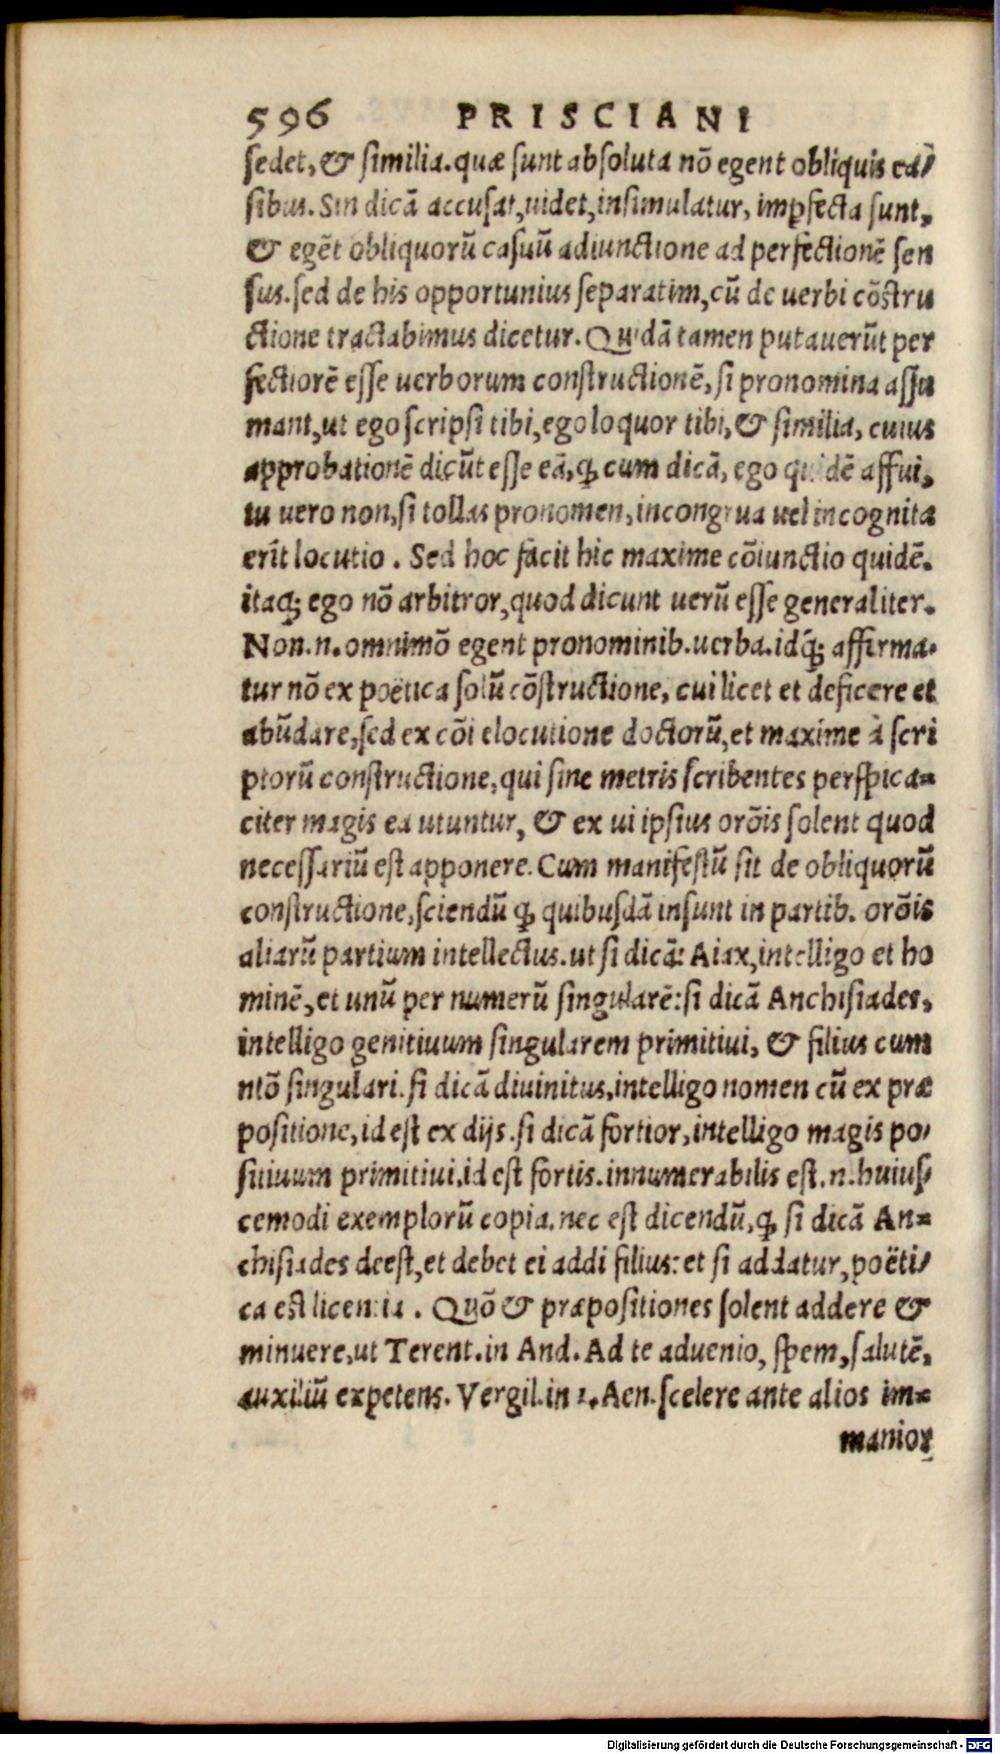 596 PRISCIANI
sedet, & similia. quæ sunt absoluta nõ egent obliquis ca/
sibus. Sin dicã accusat, uidet, insimulatur, imꝑfecta sunt,
& egẽt obliquorũ casuũ adiunctione ad perfectionẽ sen
sus. sed de his opportunius separatim, cũ de uerbi cõstru
ctione tractabimus dicetur. Quidã tamen putauerũt per
fectiorẽ esse uerborum constructionẽ, si pronomina assu
mant, ut ego scripsi tibi, ego loquor tibi, & similia, cuius
approbationẽ dicũt esse eã, ꝙ cum dicã, ego quidẽ affui,
tu uero non, si tollas pronomen, incongrua uel incognita
erit locutio. Sed hoc facit hic maxime cõiunctio quidẽ.
itaq; ego nõ arbitror, quod dicunt uerũ esse generaliter.
Non.n.omnimõ egent pronominib.uerba.idq́; affirma-
tur nõ ex poëtica solũ cõstructione, cui licet et deficere et
abũdare, sed ex cõi elocutione doctorũ, et maxime à scri
ptorũ constructione, qui sine metris scribentes perspica=
citer magis ea utuntur, & ex ui ipsius orõis solent quod
necessariũ est apponere. Cum manifestũ sit de obliquorũ
constructione, sciendũ ꝙ quibusdã insunt in partib. orõis
aliarũ partium intellectus. ut si dicã: Aiax, intelligo et ho
minẽ, et unũ per numerũ singularẽ: si dicã Anchisiades,
intelligo genitiuum singularem primitiui, & filius cum
ntõ singulari. si dicã diuinitus, intelligo nomen cũ ex præ
positione, id est ex dijs. si dicã fortior, intelligo magis po/
sitiuum primitiui, id est fortis. innumerabilis est.n.huius/
cemodi exemplorũ copia. nec est dicendũ, ꝙ si dicã An=
chisiades deest, et debet ei addi filius: et si addatur, poëti/
ca est licentia. Quõ & præpositiones solent addere &
minuere, ut Terent. in And. Ad te aduenio, spem, salutẽ,
auxiliũ expetens. Vergil. in 1. Aen. scelere ante alios im=
manior
Digitalisierung gefördert durch die Deutsche Forschungsgemeinschaft - DFG